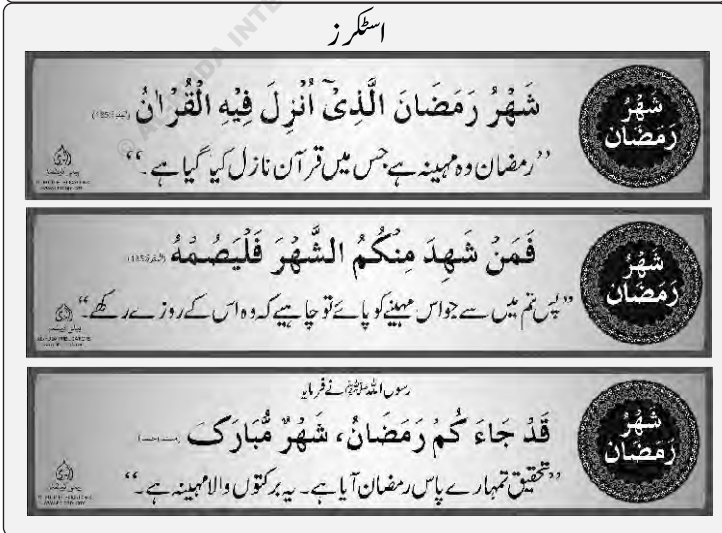 اسٹکرز
شَهْرُ رَمَضَانَ
شَهْرُ رَمَضَانَ الَّذِیْٓ اُنْزِلَ فِیْهِ الْقُرْاٰنُ
”رمضان وہ مہینہ ہے جس میں قرآن نازل کیا گیا ہے۔“
شَهْرُ رَمَضَان
فَمَنْ شَهِدَ مِنْكُمُ الشَّهْرَ فَلْيَصُمْهُ (البقرة:185)
”پس تم میں سے جو اس مہینے کو پائے تو چاہیے کہ وہ اس کے روزے رکھے۔“
شَهْرُ رَمَضَان
رسول اللہ ﷺ نے فرمایا
قَدْ جَاءَ كُمْ رَمَضَانُ، شَهْرٌ مُّبَارَكٌ
”تحقیق تمہارے پاس رمضان آیا ہے۔ یہ برکتوں والا مہینہ ہے۔“